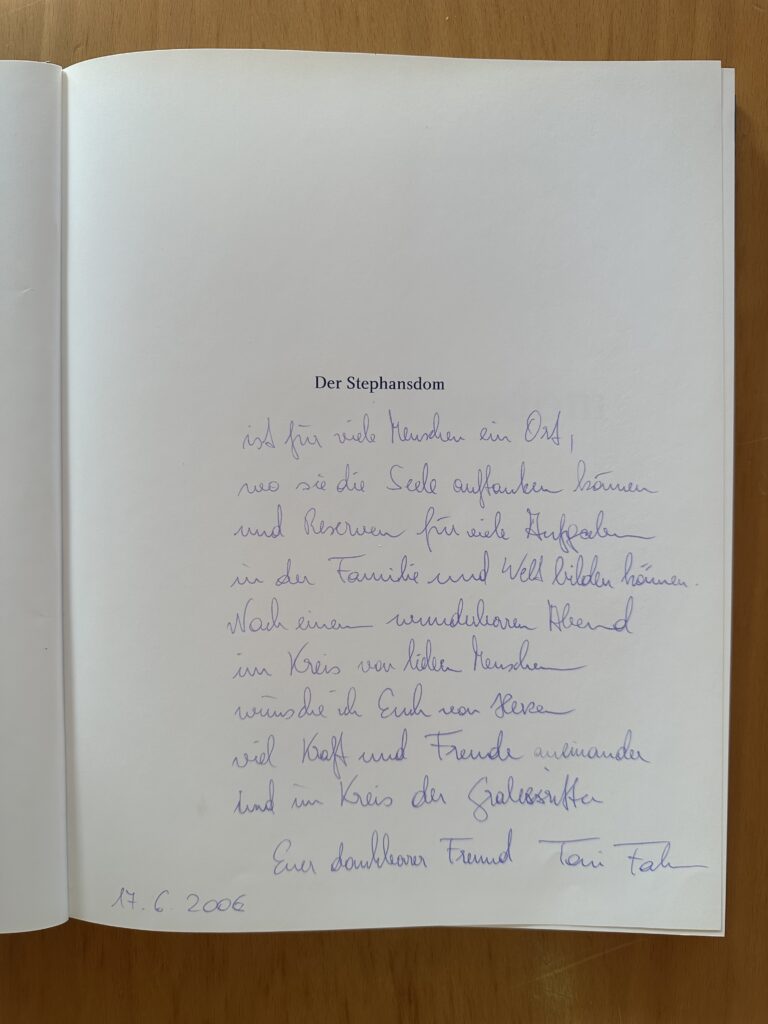 Der Stephansdom
ist für viele Menschen ein Ort,
wo sie die Seele auftanken können
und Reserven für viele Aufgaben
in der Familie und Welt bilden können.
Nach einem wunderbaren Abend
im Kreis von lieben Menschen
wünsche ich Euch von Herzen
viel Kraft und Freude aneinander
und im Kreis der Gralsritter
Euer dankbarer Freund Toni Faber
17. 6. 2006